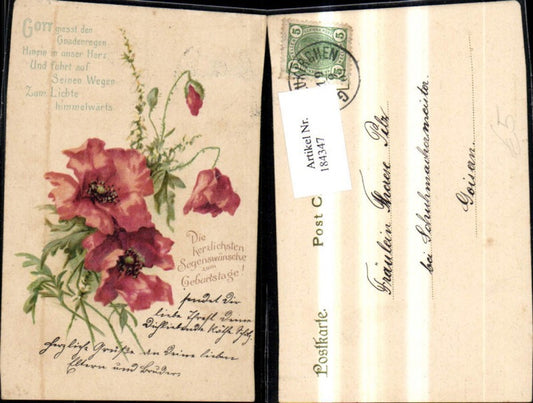 Gott giesst den
Gnadenregen
Hinein in unser Herz
Und führt auf
Seinen Wegen
Zum Lichte
himmelwärts.
Die
herzlichsten
Segenswünsche
zum
Geburtstage!
sendet Dir
liebe Theresl Deine
Dich liebende
herzliche Grüße an Deine lieben
Eltern und Brüder.
5
5
Artikel Nr.
184347
Post C
Postkarte.
Fräulein Therese Pilz
bei Schuhmachermeister
Goisern.